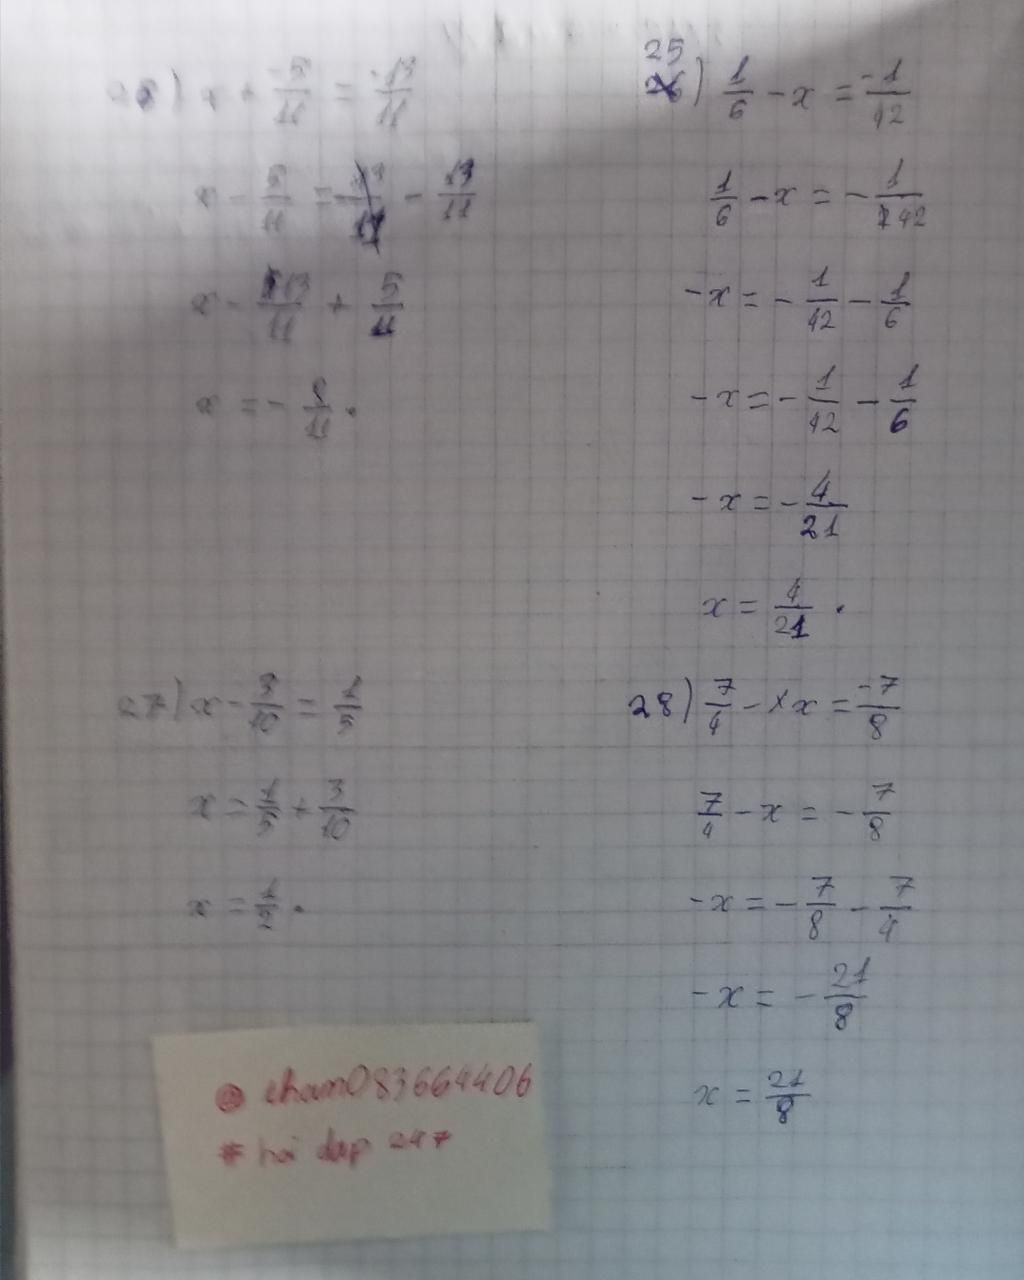 x + -5/11 = -13/11
x - 5/11 = - - 13/11
x - 13/11 + 5/11
x = - 8/11 .
25) 1/6 - x = -1/42
1/6 - x = - 1/42
-x = - 1/42 - 1/6
-x = - 1/42 - 1/6
-x = - 4/21
x = 4/21 .
27) x - 3/10 = 1/5
x = 1/5 + 3/10
x = 1/2 .
28) 7/4 - x = -7/8
7/4 - x = - 7/8
-x = - 7/8 - 7/4
-x = - 21/8
x = 21/8
# hoi dap 247